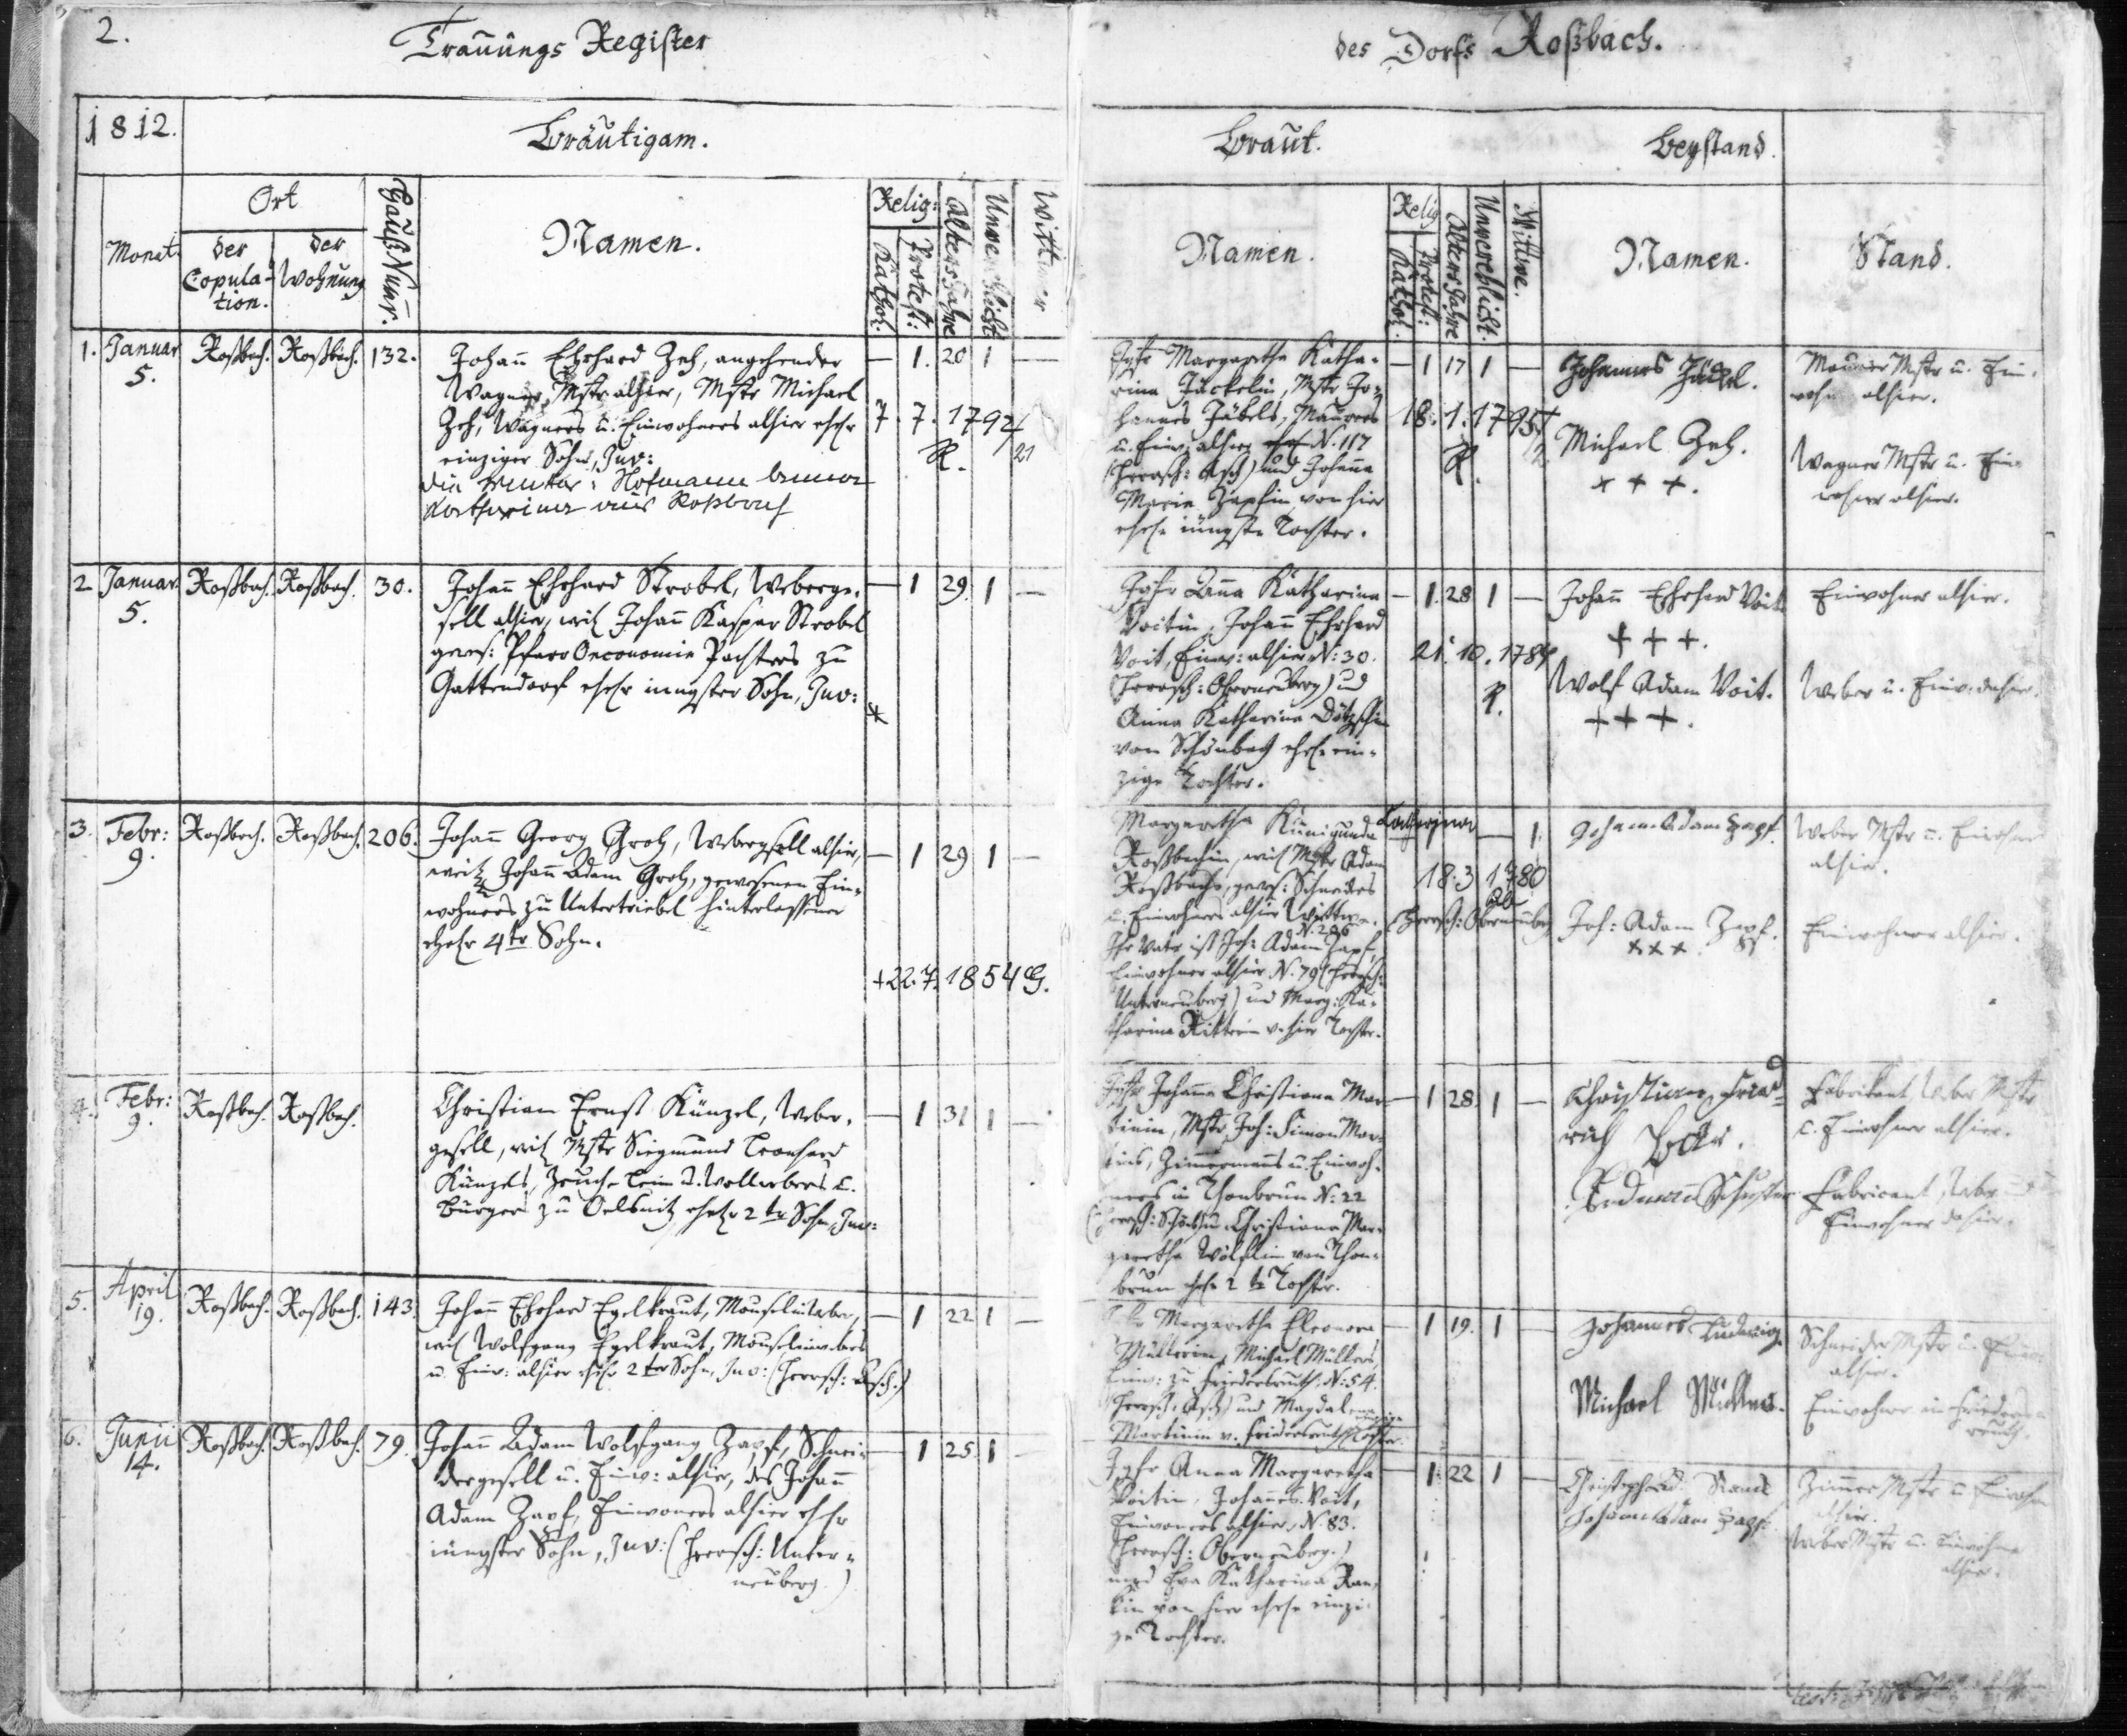 2.
Trauungs Register
des Dorfs Roßbach.
1812.
Bräutigam.
Braut.
Beystand.
Monat.
Ort
der Copula-
tion.
der
Wohnung
Hauß Num̅r.
Namen.
Relig:
Kathol.
Protest:
Alters Jahre
Unverehlicht
Wittwer
Namen.
Relig
Kathol.
Protest:
Alters Jahre
Unverehlicht.
Wittwe.
Namen.
Stand.
1. Januar 5. Roßbach. Roßbach. 132.
Johan̅ Ehrhard Zeh, angehender
Wagner Mstr alhier, Mstr Michael
Zeh, Wagners u. Einwohners alhier ehel
einziger Sohn, Juv:
die Mutter: Hofmann Anna
Katharina aus Roßbach
— 1. 20 1 —
7. 7. 1792
R. 21
Jgfr Margaretha Katha-
rina Jäckelin, Mstr Jo-
hannes Jäkels, Maurers
u. Einw: alhier N. 117
(Herrsch: Asch) und Johanna
Maria Zapfin von hier
ehel. jüngste Tochter.
— 1 17 1 —
18. 1. 1795
R.
Johannes Jäckel.
Michael Zeh.
+ + +.
Maurer Mstr u. Ein-
wohn alhier.
Wagner Mstr u. Ein-
wohner alhier.
2 Januar. 5. Roßbach. Roßbach. 30.
Johan̅ Ehrhard Strobel, Weberge-
sell alhier, weil Johan̅ Kaspar Strobel
gewes: Pfarr Oeconomie Pachters zu
Gattendorf ehel jüngster Sohn, Juv:
— 1 29. 1 —
Jgfr Anna Katharina
Voitin, Johan̅ Ehrhard
Voit, Einw: alhier N: 30.
(Herrsch: Oberneuberg) und
Anna Katharina
von Schönbach ehel. ein-
zige Tochter.
— 1. 28 1 —
21. 10. 1784
R.
Johan̅ Ehrhard Voit
+ + +.
Wolf Adam Voit.
+ + +.
Einwohner alhier.
Weber u. Einw: dahier.
3. Febr: 9. Roßbach. Roßbach. 206.
Johan̅ Georg Groh, Webergesell alhier,
weil Johan̅ Adam Groh, gewesenen Ein-
wohners zu Untertriebel hinterlassener
ehel 4ter Sohn.
— 1 29 1 —
+ 22. 7. 1854 G.
Margaretha Kunigunda Catharina
Roßbachin, weil Mstr Adam
Roßbachs, gewes: Schneiders
u. Einwohners alhier Wittwe.
N. 206
Ihr Vater ist Joh: Adam Zapf,
Einwohner alhier N. 79 (Herrsch:
Unterneuberg) und Marg: Ka-
tharina Ritterin v. hier Tochter.
— 1.
18. 3 1780
(Herrsch: Oberneuberg
Johann Adam Zapf.
Joh: Adam Zapf.
+ + +
Weber Mstr u. Einwohner
alhier.
Einwohner alhier.
4. Febr: 9. Roßbach. Roßbach.
Christian Ernst Künzel, Weber-
gesell, weil Mstr Siegmund Leonhard
Künzels, Zeuch- Lein u. Wollwebers u.
Bürgers zu Oelsnitz ehel 2ter Sohn, Juv:
— 1 31 1 —
Jgfr Johanna Christiana Mar-
tinin, Mstr Joh: Simon Mar-
tins, Zimmermanns u. Einwoh-
ners in Thonbrun N: 22
(Herrsch: Schönb) u. Christiana Mar-
garetha Wölflin von Thon-
brun ehel. 2te Tochter.
— 1 28. 1 —
Christian Fried-
rich
Erdmann Schuster
Fabrikant, Weber Mstr
u. Einwohner alhier.
Fabricant, Weber und
Einwohner dahier.
5. April 19. Roßbach. Roßbach. 143.
Johan̅ Ehrhard Egelkraut, Mouselinweber,
weil Wolfgang Egelkraut, Mouselinwebers
u. Einw: alhier ehel 2ter Sohn, Juv: (Herrsch: Asch.)
— 1 22 1 —
Jgfr Margaretha Eleonora
Müllerin, Michael Müllers,
Einw: zu Friedersreuth N: 54.
(Herrsch: Asch) und Magdalena
Martinin v. Friedersreuth einzige Tochter.
— 1 19. 1 —
Johannes Ludwig
Michael Müller.
Schneider Mstr u. Einw:
alhier.
Einwohner in Frieders-
reuth.
6. Junii 14. Roßbach. Roßbach. 79.
Johan̅ Adam Wolfgang Zapf, Schnei-
dergesell u. Einw: alhier, des Johan̅
Adam Zapf, Einwoners alhier ehel
jüngster Sohn, Juv: (Herrsch: Unter-
neuberg.)
— 1 25 1
Jgfr Anna Margaretha
Voitin, Johannes Voit,
Einwoners alhier, N. 83.
(Herrsch: Oberneuberg.)
und Eva Katharina Ran-
kin von hier ehel. einzi-
ge Tochter.
— 1. 22 1 —
Christoph Ad.
Johann Adam Zapf
Zimmer Mstr u. Einwohn
alhier.
Weber Mstr u. Einwohner
alhier.